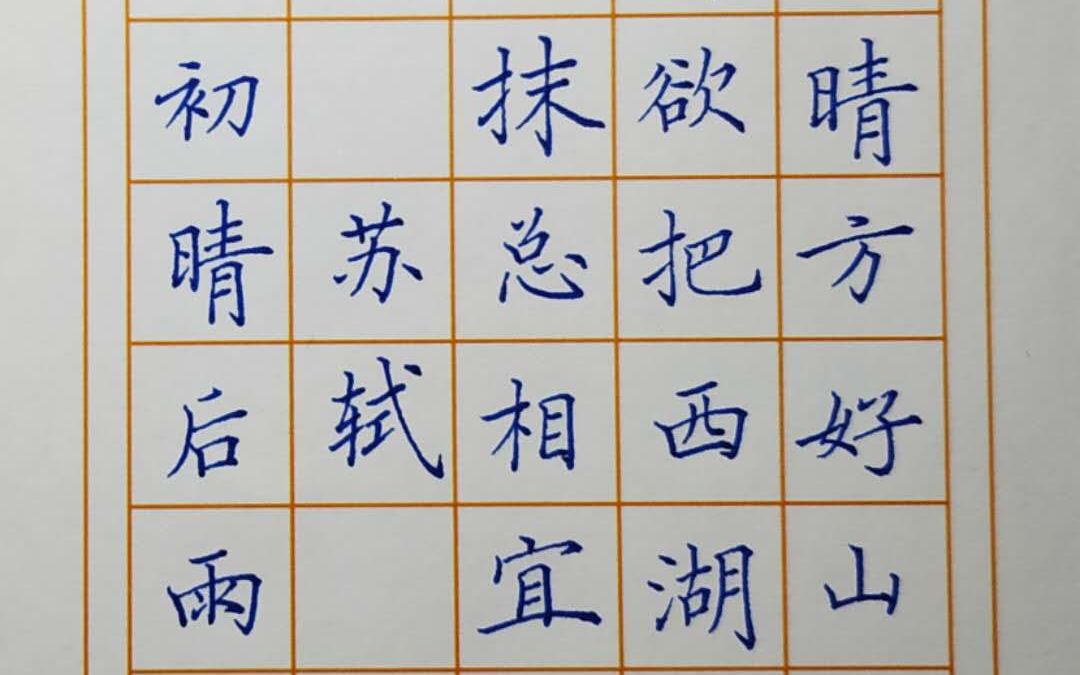 晴方好山
欲把西湖
抹总相宜
苏轼
初晴后雨